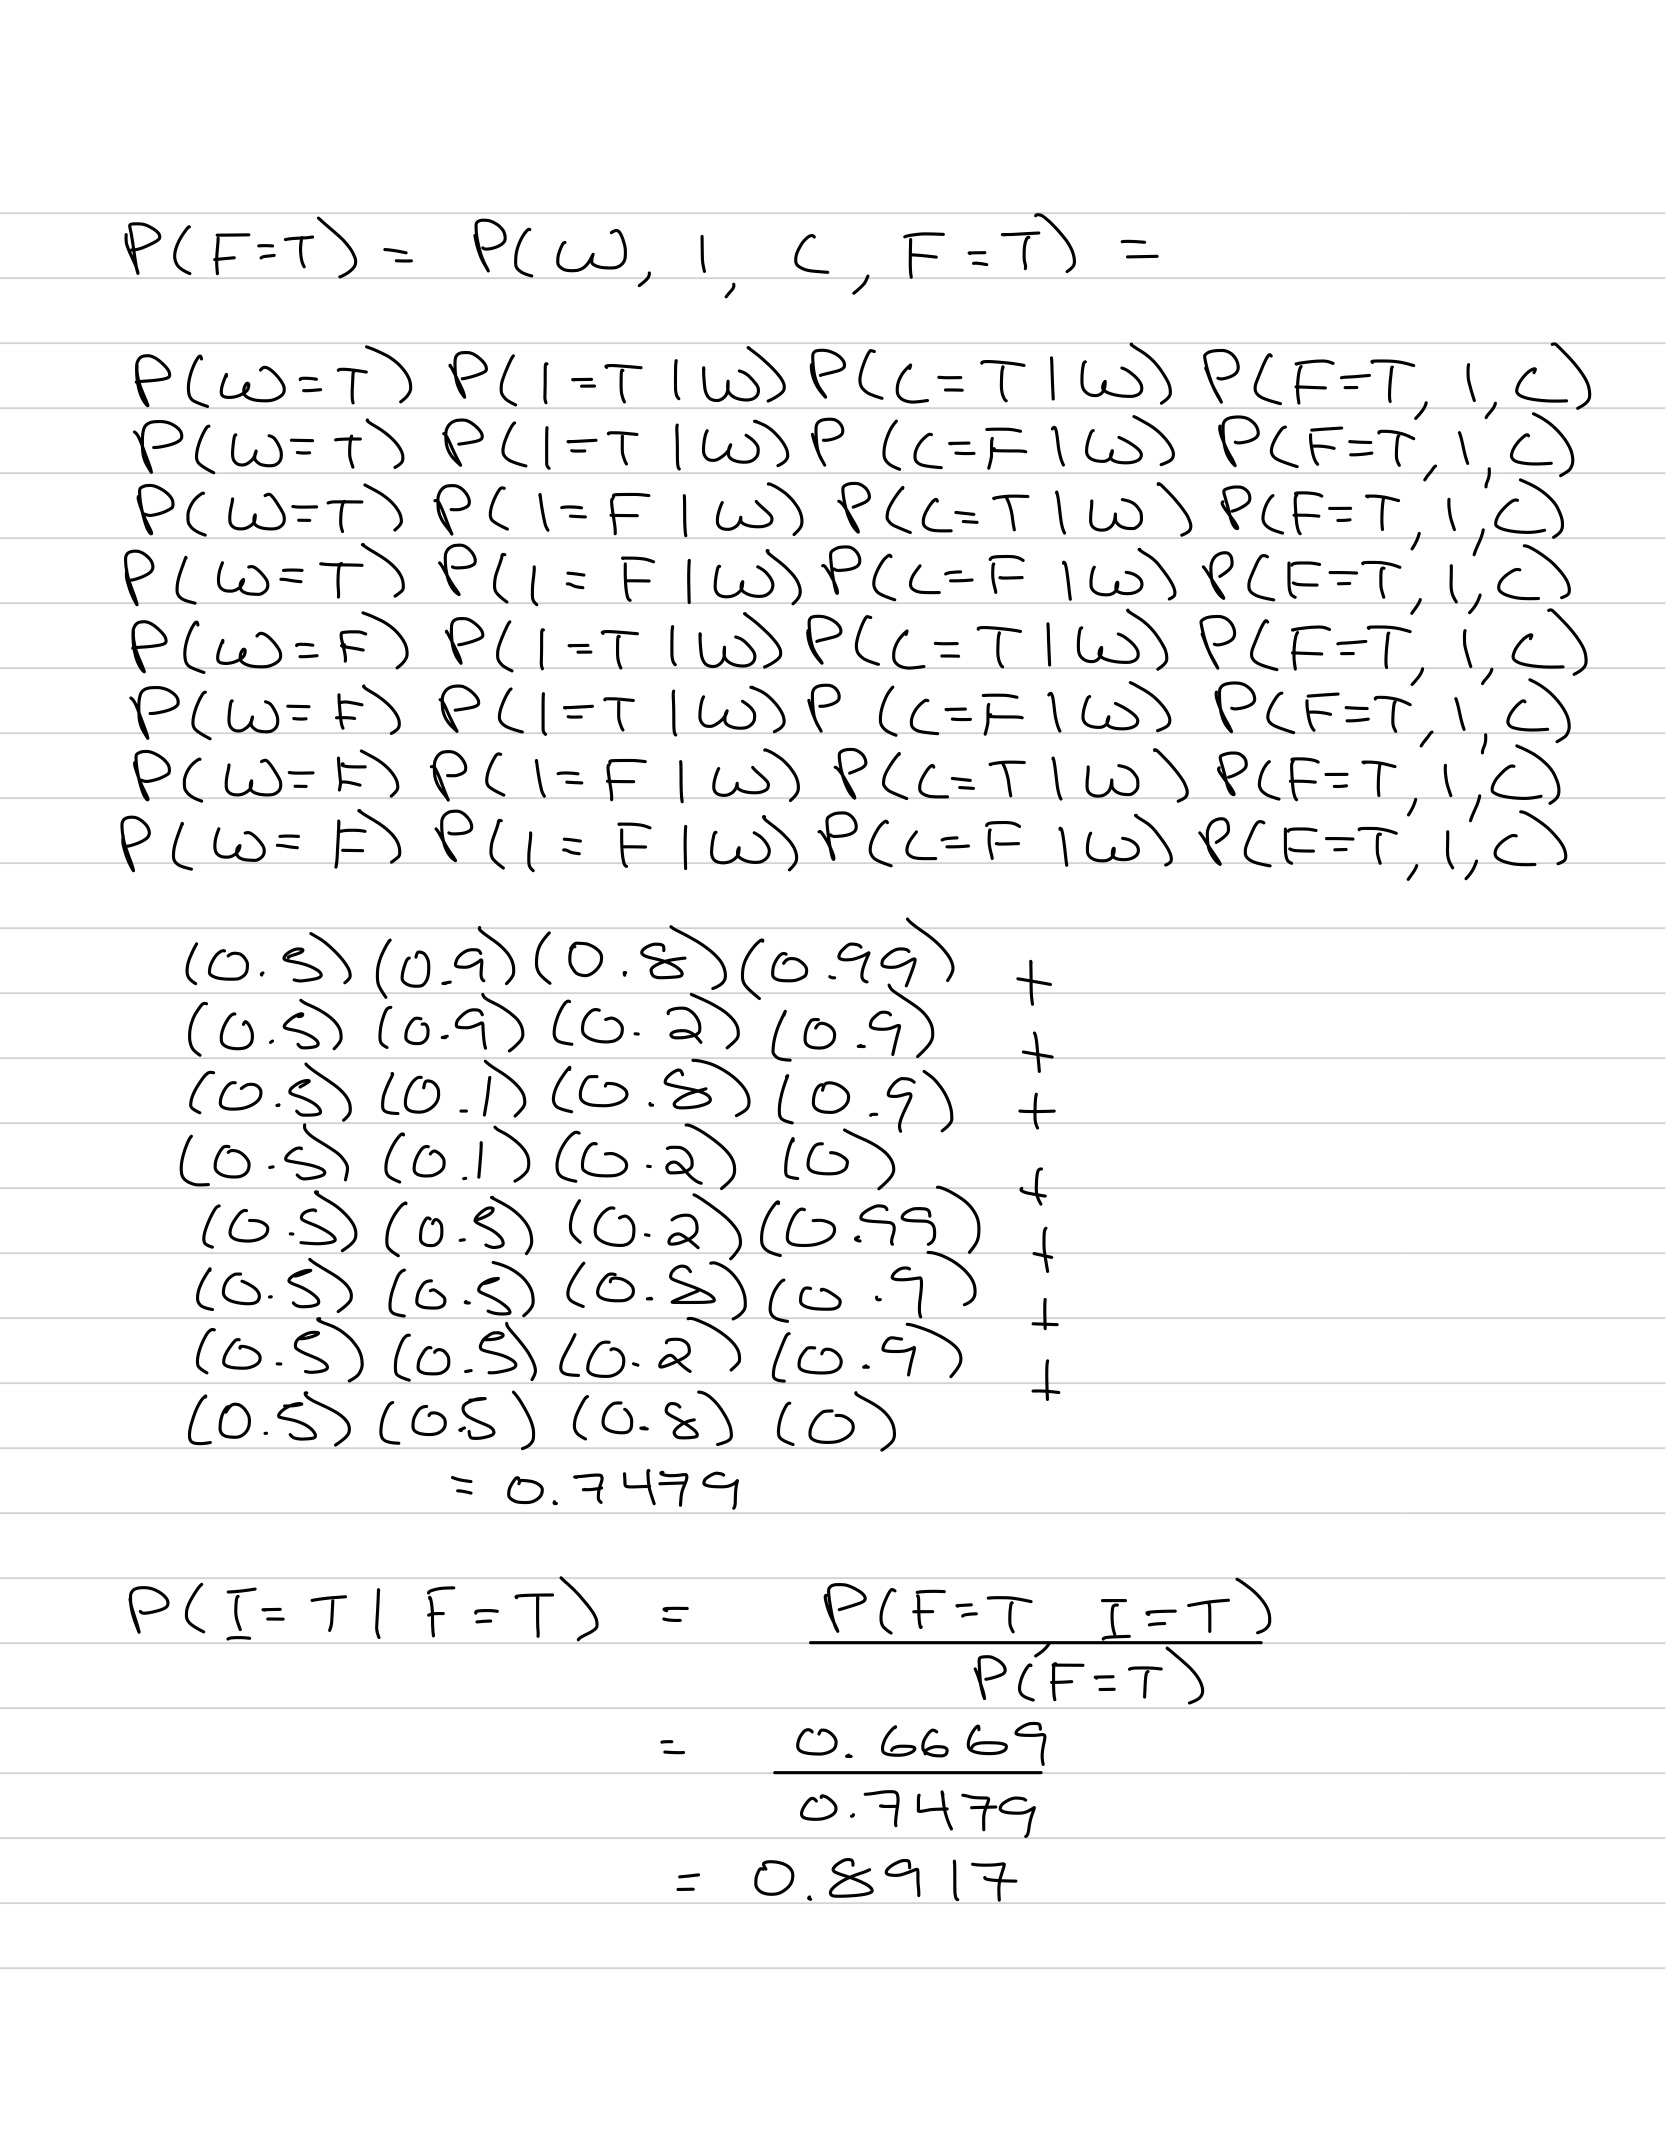 P(F=T) = P(W, I, C, F=T) =
P(W=T) P(I=T|W) P(C=T|W) P(F=T, I, C)
P(W=T) P(I=T|W) P(C=F|W) P(F=T, I, C)
P(W=T) P(I=F|W) P(C=T|W) P(F=T, I, C)
P(W=T) P(I=F|W) P(C=F|W) P(F=T, I, C)
P(W=F) P(I=T|W) P(C=T|W) P(F=T, I, C)
P(W=F) P(I=T|W) P(C=F|W) P(F=T, I, C)
P(W=F) P(I=F|W) P(C=T|W) P(F=T, I, C)
P(W=F) P(I=F|W) P(C=F|W) P(F=T, I, C)
(0.5)(0.9)(0.8)(0.99) +
(0.5)(0.9)(0.2)(0.9) +
(0.5)(0.1)(0.8)(0.9) +
(0.5)(0.1)(0.2)(0) +
(0.5)(0.5)(0.2)(0.99) +
(0.5)(0.5)(0.8)(0.9) +
(0.5)(0.5)(0.2)(0.9) +
(0.5)(0.5)(0.8)(0)
= 0.7479
P(I=T | F=T) = P(F=T, I=T)
P(F=T)
= 0.6669
0.7479
= 0.8917